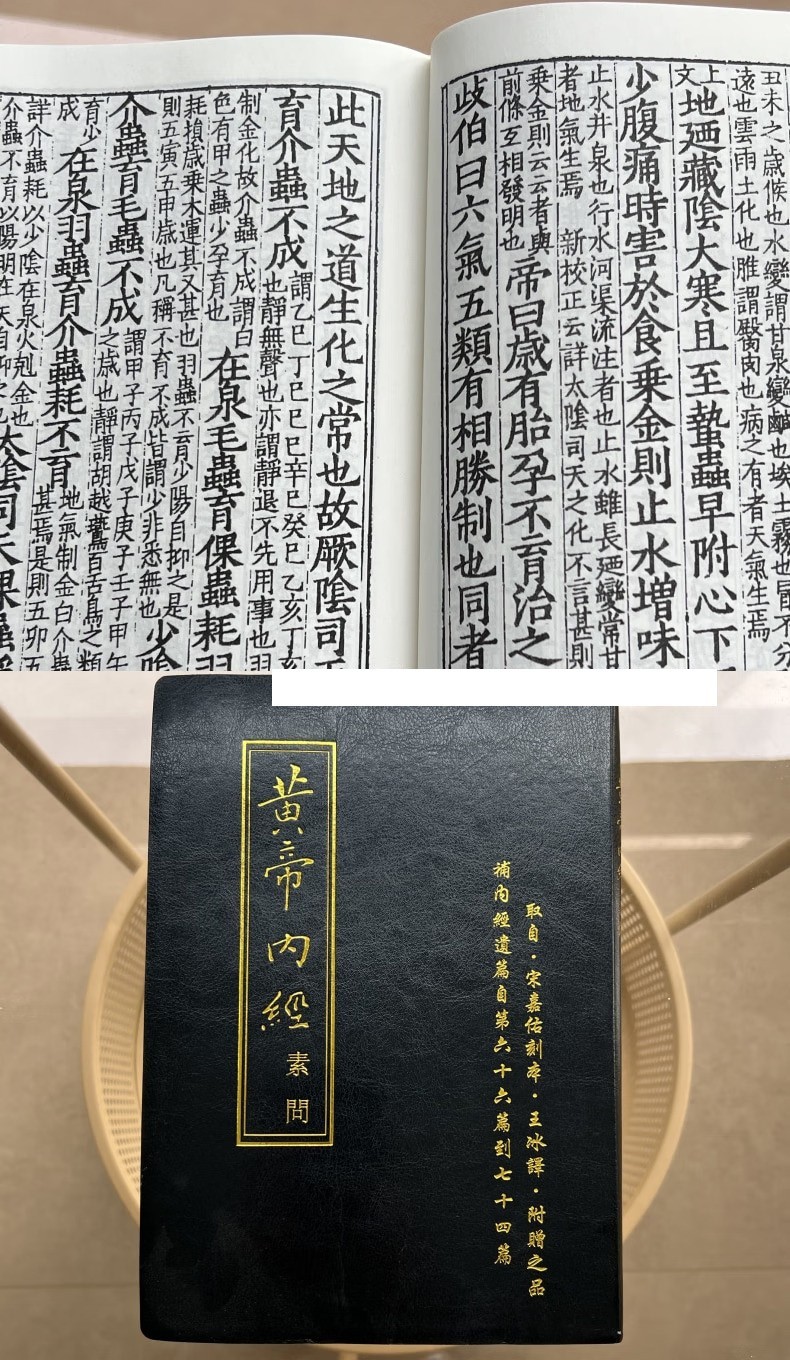 丑未之歲候也水變謂甘泉變鹹也埃土霧也冒不分
遠也雲雨土化也脽謂臀肉也病之有者天氣生焉
上文
地廼藏陰大寒且至蟄蟲早附心下
少腹痛時害於食乘金則止水增味
止水井泉也行水河渠流注者也止水雖長廼變常甘
者地氣生焉 新校正云詳太陰司天之化不言甚則
乘金則云云者與
前條互相發明也
帝曰歲有胎孕不育治之
歧伯曰六氣五類有相勝制也同者
此天地之道生化之常也故厥陰司
育介蟲不成
謂乙巳丁巳己巳辛巳癸巳乙亥丁亥
也靜無聲也亦謂靜退不先用事也羽
制金化故介蟲不成謂白
色有甲之蟲少孕育也
在泉毛蟲育倮蟲耗羽
耗損歲乘木運其又甚也羽蟲不育少陽自抑之是
則五寅五申歲也凡稱不育不成皆謂少非悉無也
少陰
介蟲育毛蟲不成
謂甲子丙子戊子庚子壬子甲午
之歲也靜謂胡越鷰百舌鳥之類
育少
成
在泉羽蟲育介蟲耗不育
地氣制金白介蟲
甚焉是則五卯五
詳介蟲耗以少陰在泉火剋金也
介蟲不育以陽明在天自抑之也
太陰司天倮蟲
黃帝內經
素問
取自·宋嘉佑刻本·王冰譯·附贈之品
補內經遺篇自第六十六篇到七十四篇